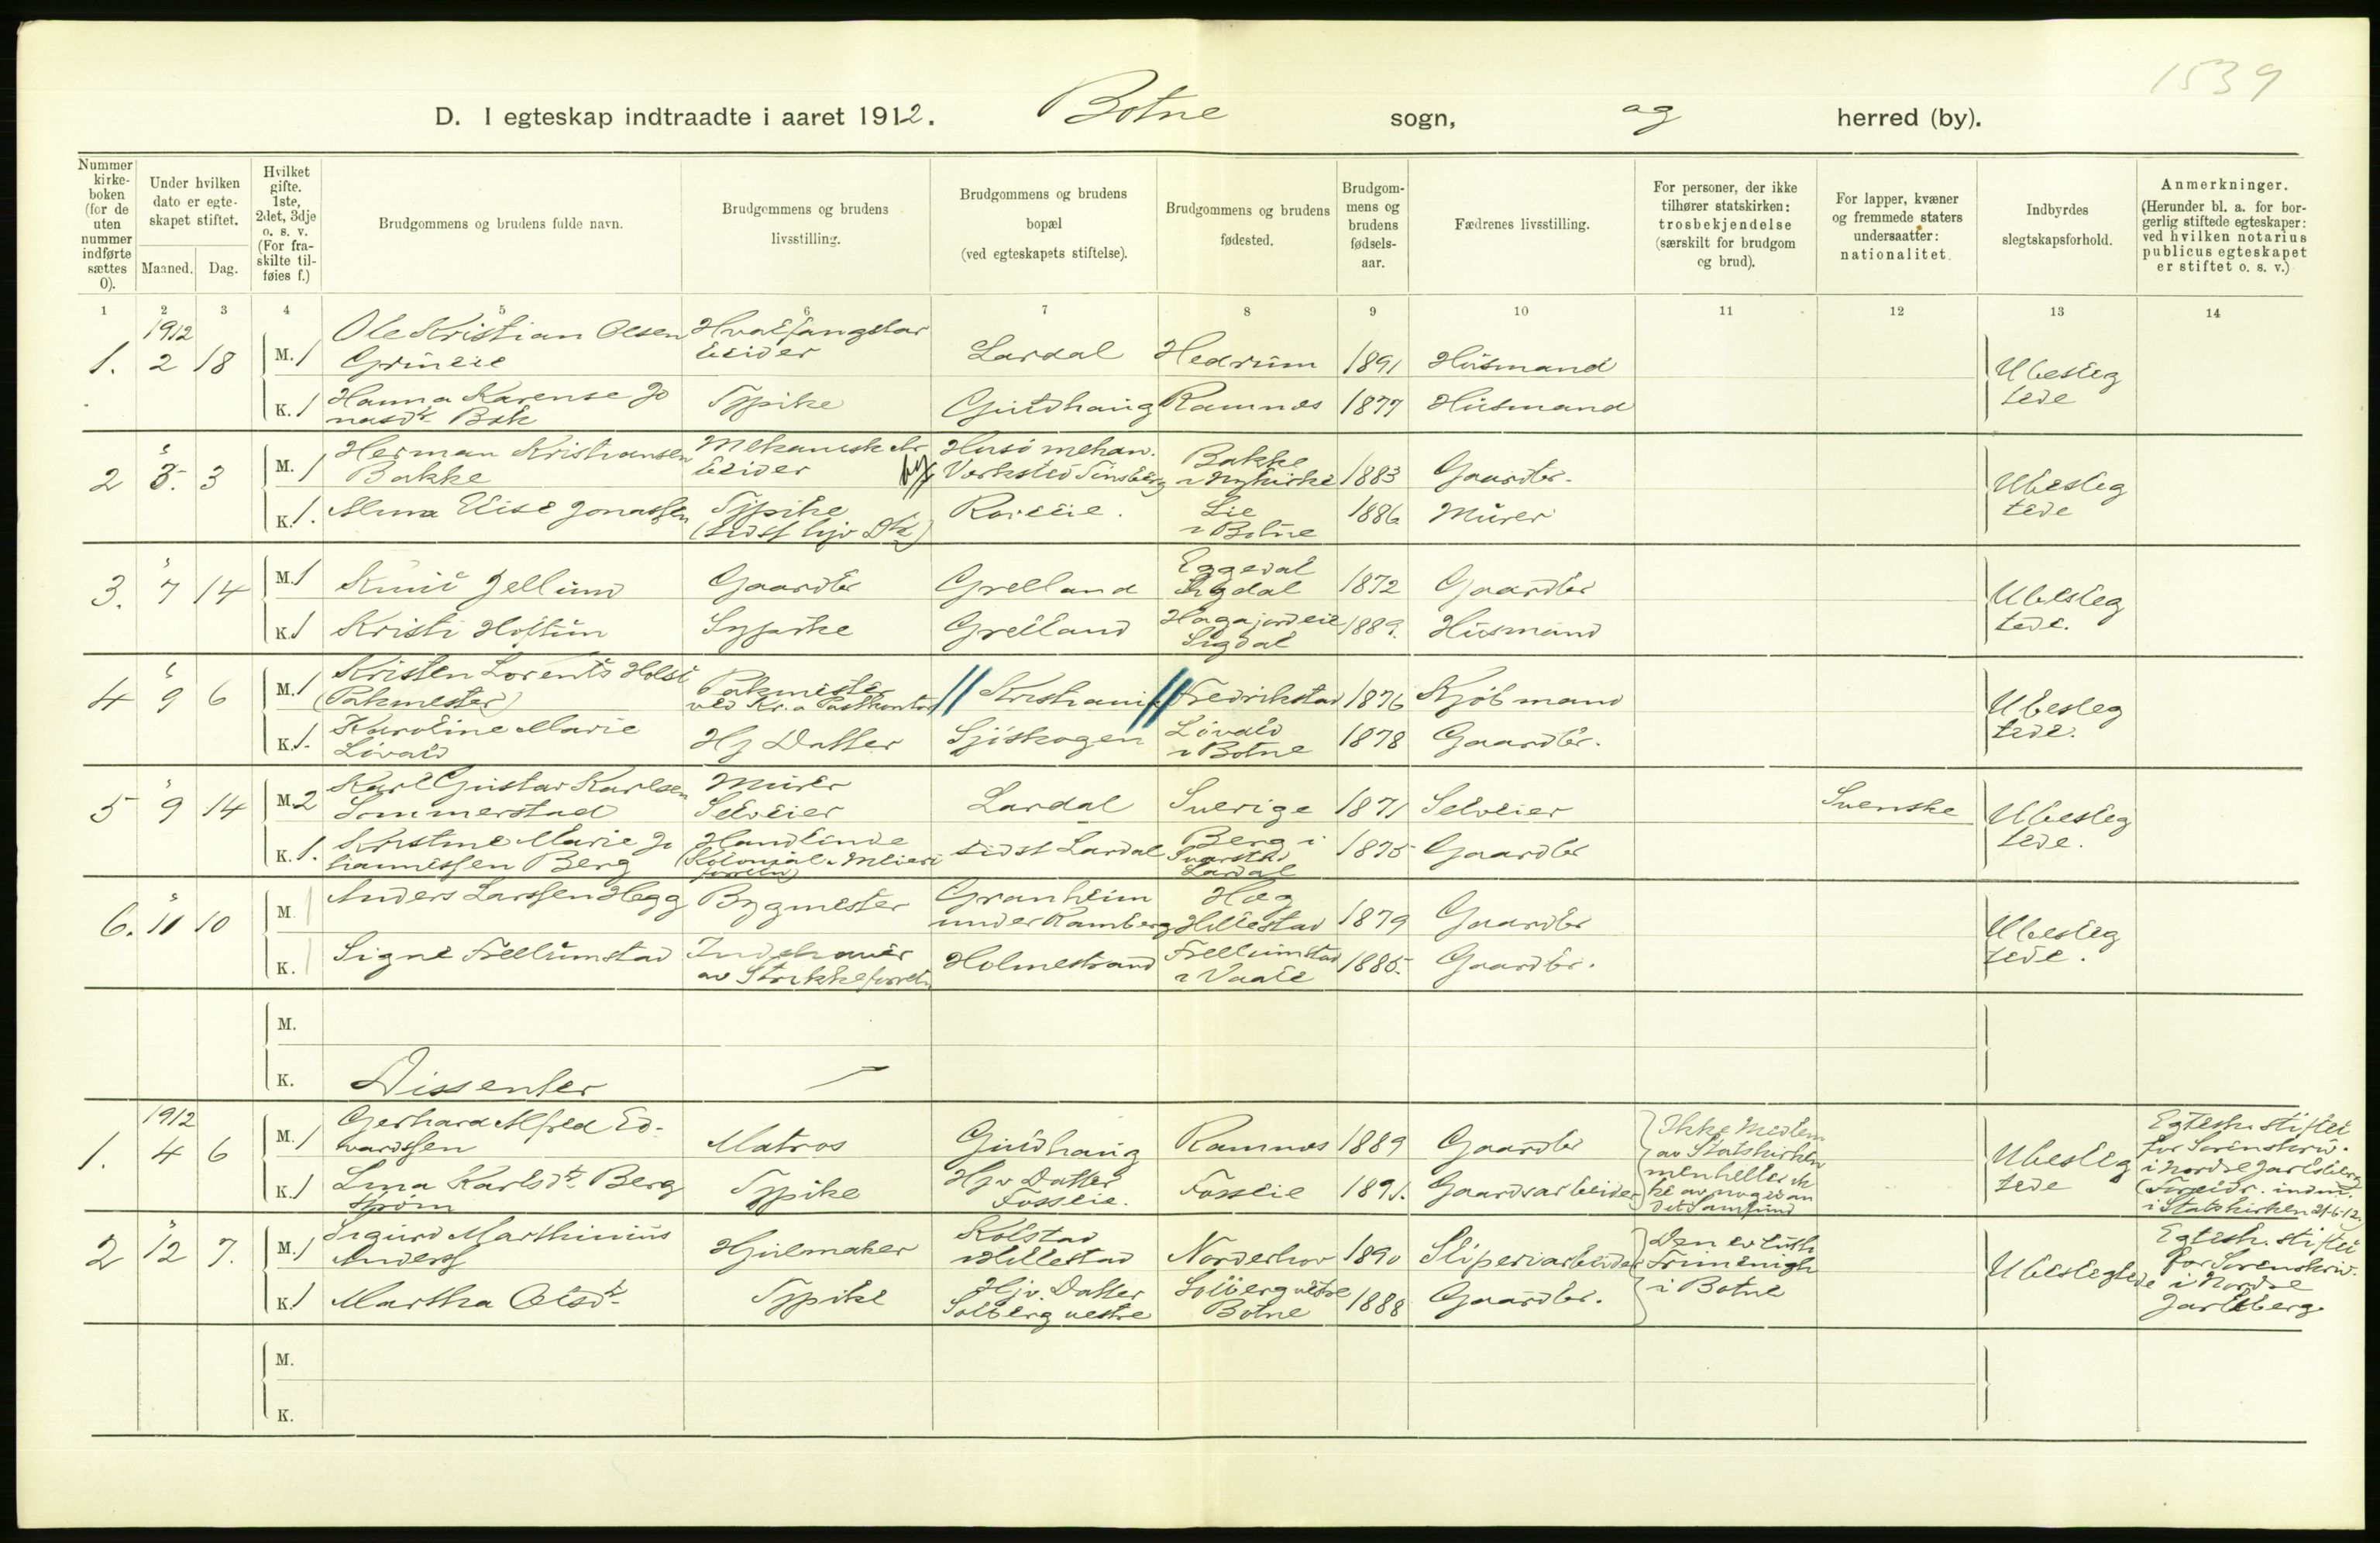 1539
D. I egteskap indtraadte i aaret 1912. Botne sogn, og herred (by).
Nummer kirke-boken (for de uten nummer indførte sættes 0).
Under hvilken dato er egte-skapet stiftet.
Maaned. Dag.
Hvilket gifte. 1ste, 2det, 3dje o. s. v. (For fra-skilte til-føies f.)
Brudgommens og brudens fulde navn.
Brudgommens og brudens livsstilling.
Brudgommens og brudens bopæl (ved egteskapets stiftelse).
Brudgommens og brudens fødested.
Brudgom-mens og brudens fødsels-aar.
Fædrenes livsstilling.
For personer, der ikke tilhører statskirken: trosbekjendelse (særskilt for brudgom og brud).
For lapper, kvæner og fremmede staters undersaatter: nationalitet.
Indbyrdes slegtskapsforhold.
Anmerkninger. (Herunder bl. a. for bor-gerlig stiftede egteskaper: ved hvilken notarius publicus egteskapet er stiftet o. s. v.)
1 2 3 4 5 6 7 8 9 10 11 12 13 14
1912
1. 2 18 M. 1 Ole Kristian Olsen Hvalfangstar
beider Lardal Hedrum 1891 Husmand Ubesleg
tede
K. 1 Hanna Karense Jo
nasdtr Bøk Tjpike Gutdhaug Ramnæs 1877 Husmand
2 " 3 M. 1 Herman Kristiansen
Bakke Mekanisk Ar
beider Husø mehan.
Verksted Tønsberg Bakke
i Nykirke 1883 Gaardbr. Ubesleg
tede
K. 1. Alma Elise Jonassen Tjpike Lie
i Botne 1886 Murer
3. " 7 14 M. 1 Knut Jellum Gaardbr Grelland Eggedal
Sigdal 1872 Gaardbr Ubesleg
tede.
K. 1 Kristi Hoftun Grelland Hagajordeie
Sigdal 1889. Husmand
4 " 9 6 M. 1 Kristen Lorents Holst
(Pakmester) Pakmester
ved Kr.a Postkontor Kristiania Fredrikstad 1876 Kjøbmand Ubesleg
tede.
K. 1. Karoline Marie
Løvald Hj Datter Sjøskogen Løvald
i Botne 1878 Gaardbr.
5 " 9 14 M. 2 Karl Gustav Karlsen
Sommerstad Murer
Selveier Lardal Sverige 1871 Selveier Svenske Ubesleg
tede.
K. 1. Kristine Marie Jo
hannessen Berg Handlende
(Kolonial & Meieri
forretn) sidst Lardal Berg i
Svarstad
Lardal 1875 Gaardbr
6. " 11 10 M. 1 Anders Larssen Hegg Bygmester Granheim
under Ramberg Hæg
Hillestad 1879 Gaardbr Ubesleg
tede.
K. 1 Signe Frellumstad Indehaver
av Strikkeforretn Holmestrand Frellumstad
i Vaale 1885. Gaardbr.
M.
K. Dissenter
1912
1. 4 6 M. 1 Gerhard Alfred Ed-
vardssen Matros Gutdhaug Ramnæs 1889 Gaardbr Ikke Medlem
av Statskirken
men heller ik
ke av noget an
det Samfund Ubesleg
tede Egtesk. stiftet
for Sorenskriv.
i Nordre Jarlsberg
i Statskirken 21-6-12.
K. 1 Lina Karlsdtr Berg
strøm Tjpike Hjv Datter
Fosseie. Fosseie 1891. Gaardsarbeider
2 " 12 7. M. 1 Sigurd Marthinius
Anderss Hjulmaker Kolstad
Hillestad Norderhov 1890 Sliperiarbeider Den ev luth
Frimenigh
i Botne Ubeslegtede Egtesk. stiftet
for Sorenskriv.
i Nordre
Jarlsberg.
K. 1 Martha Olsdtr Tjpike Hjv. Datter
Solberg vestre Solberg vestre
Botne 1888 Gaardbr.
M.
K.